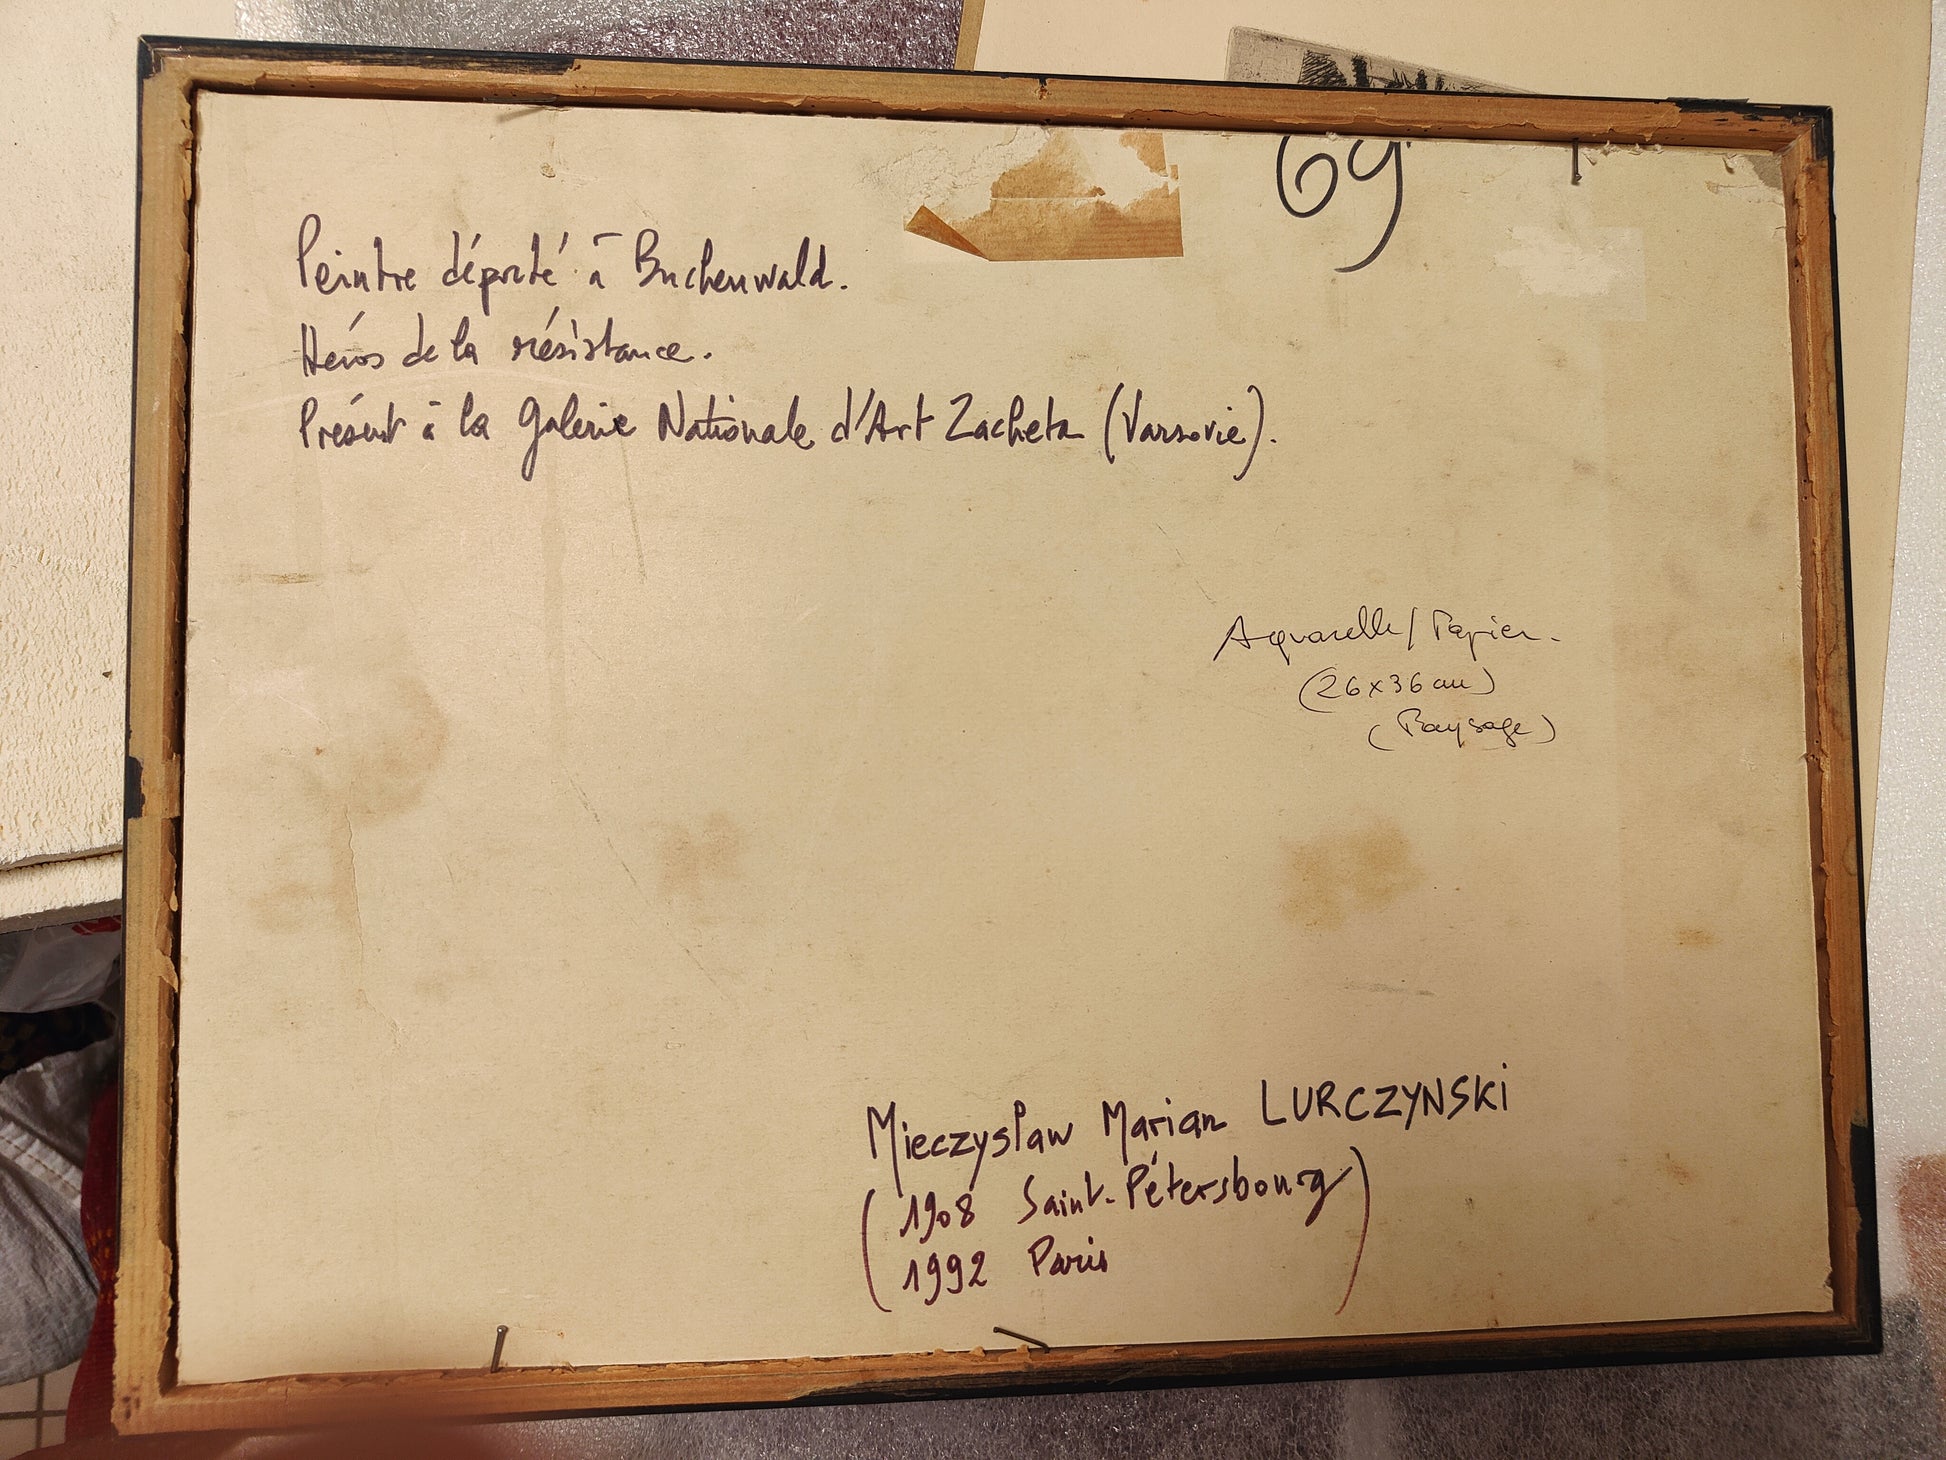 69
Peintre déporté à Buchenwald.
Héros de la résistance.
Présent à la Galerie Nationale d'Art Zacheta (Varsovie).
Aquarelle/Papier.
(26x36 cm)
(Paysage)
Mieczysław Marian LURCZYNSKi
(1908 Saint-Pétersbourg
1992 Paris)